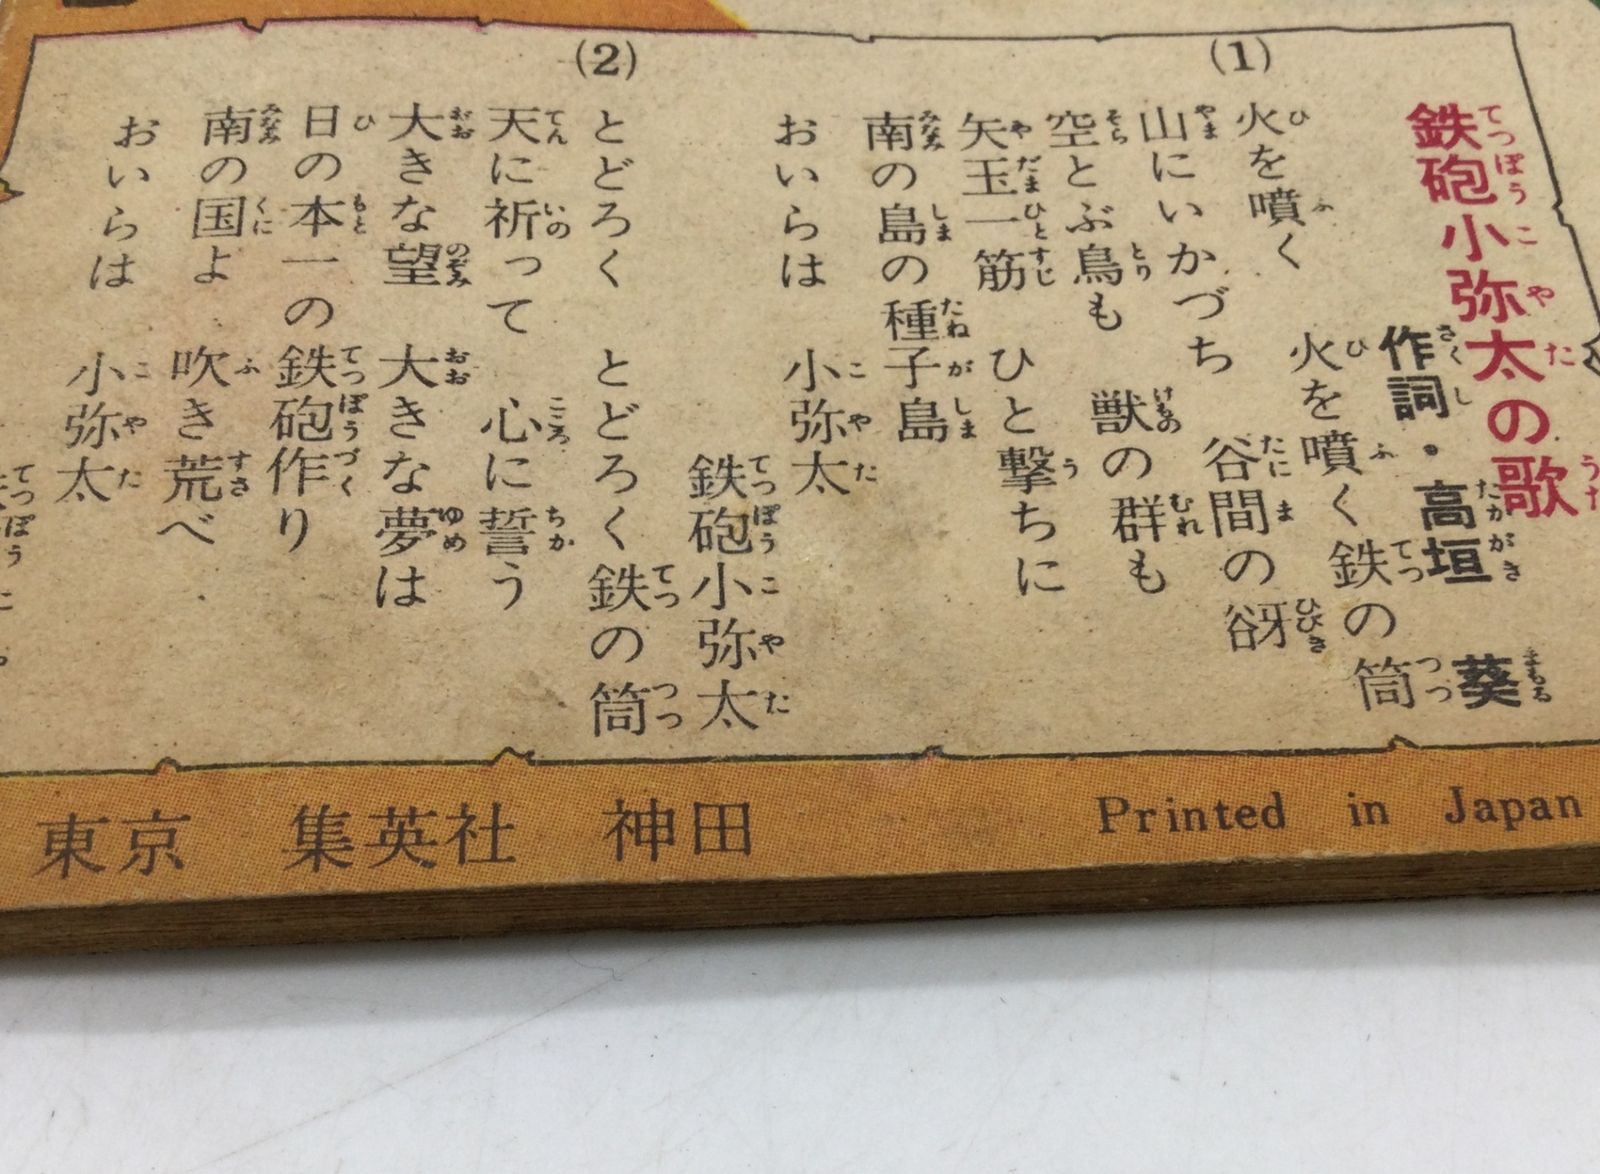 鉄砲小弥太の歌
作詞・高垣 葵
(1)
火を噴く 火を噴く鉄の筒
山にいかづち 谷間の谺
空とぶ鳥も 獣の群も
矢玉一筋 ひと撃ちに
南の島の種子島
おいらは 小弥太
鉄砲小弥太
(2)
とどろく とどろく鉄の筒
天に祈って 心に誓う
大きな望 大きな夢は
日の本一の 鉄砲作り
南の国よ 吹き荒べ
おいらは 小弥太
東京 集英社 神田
Printed in Japan